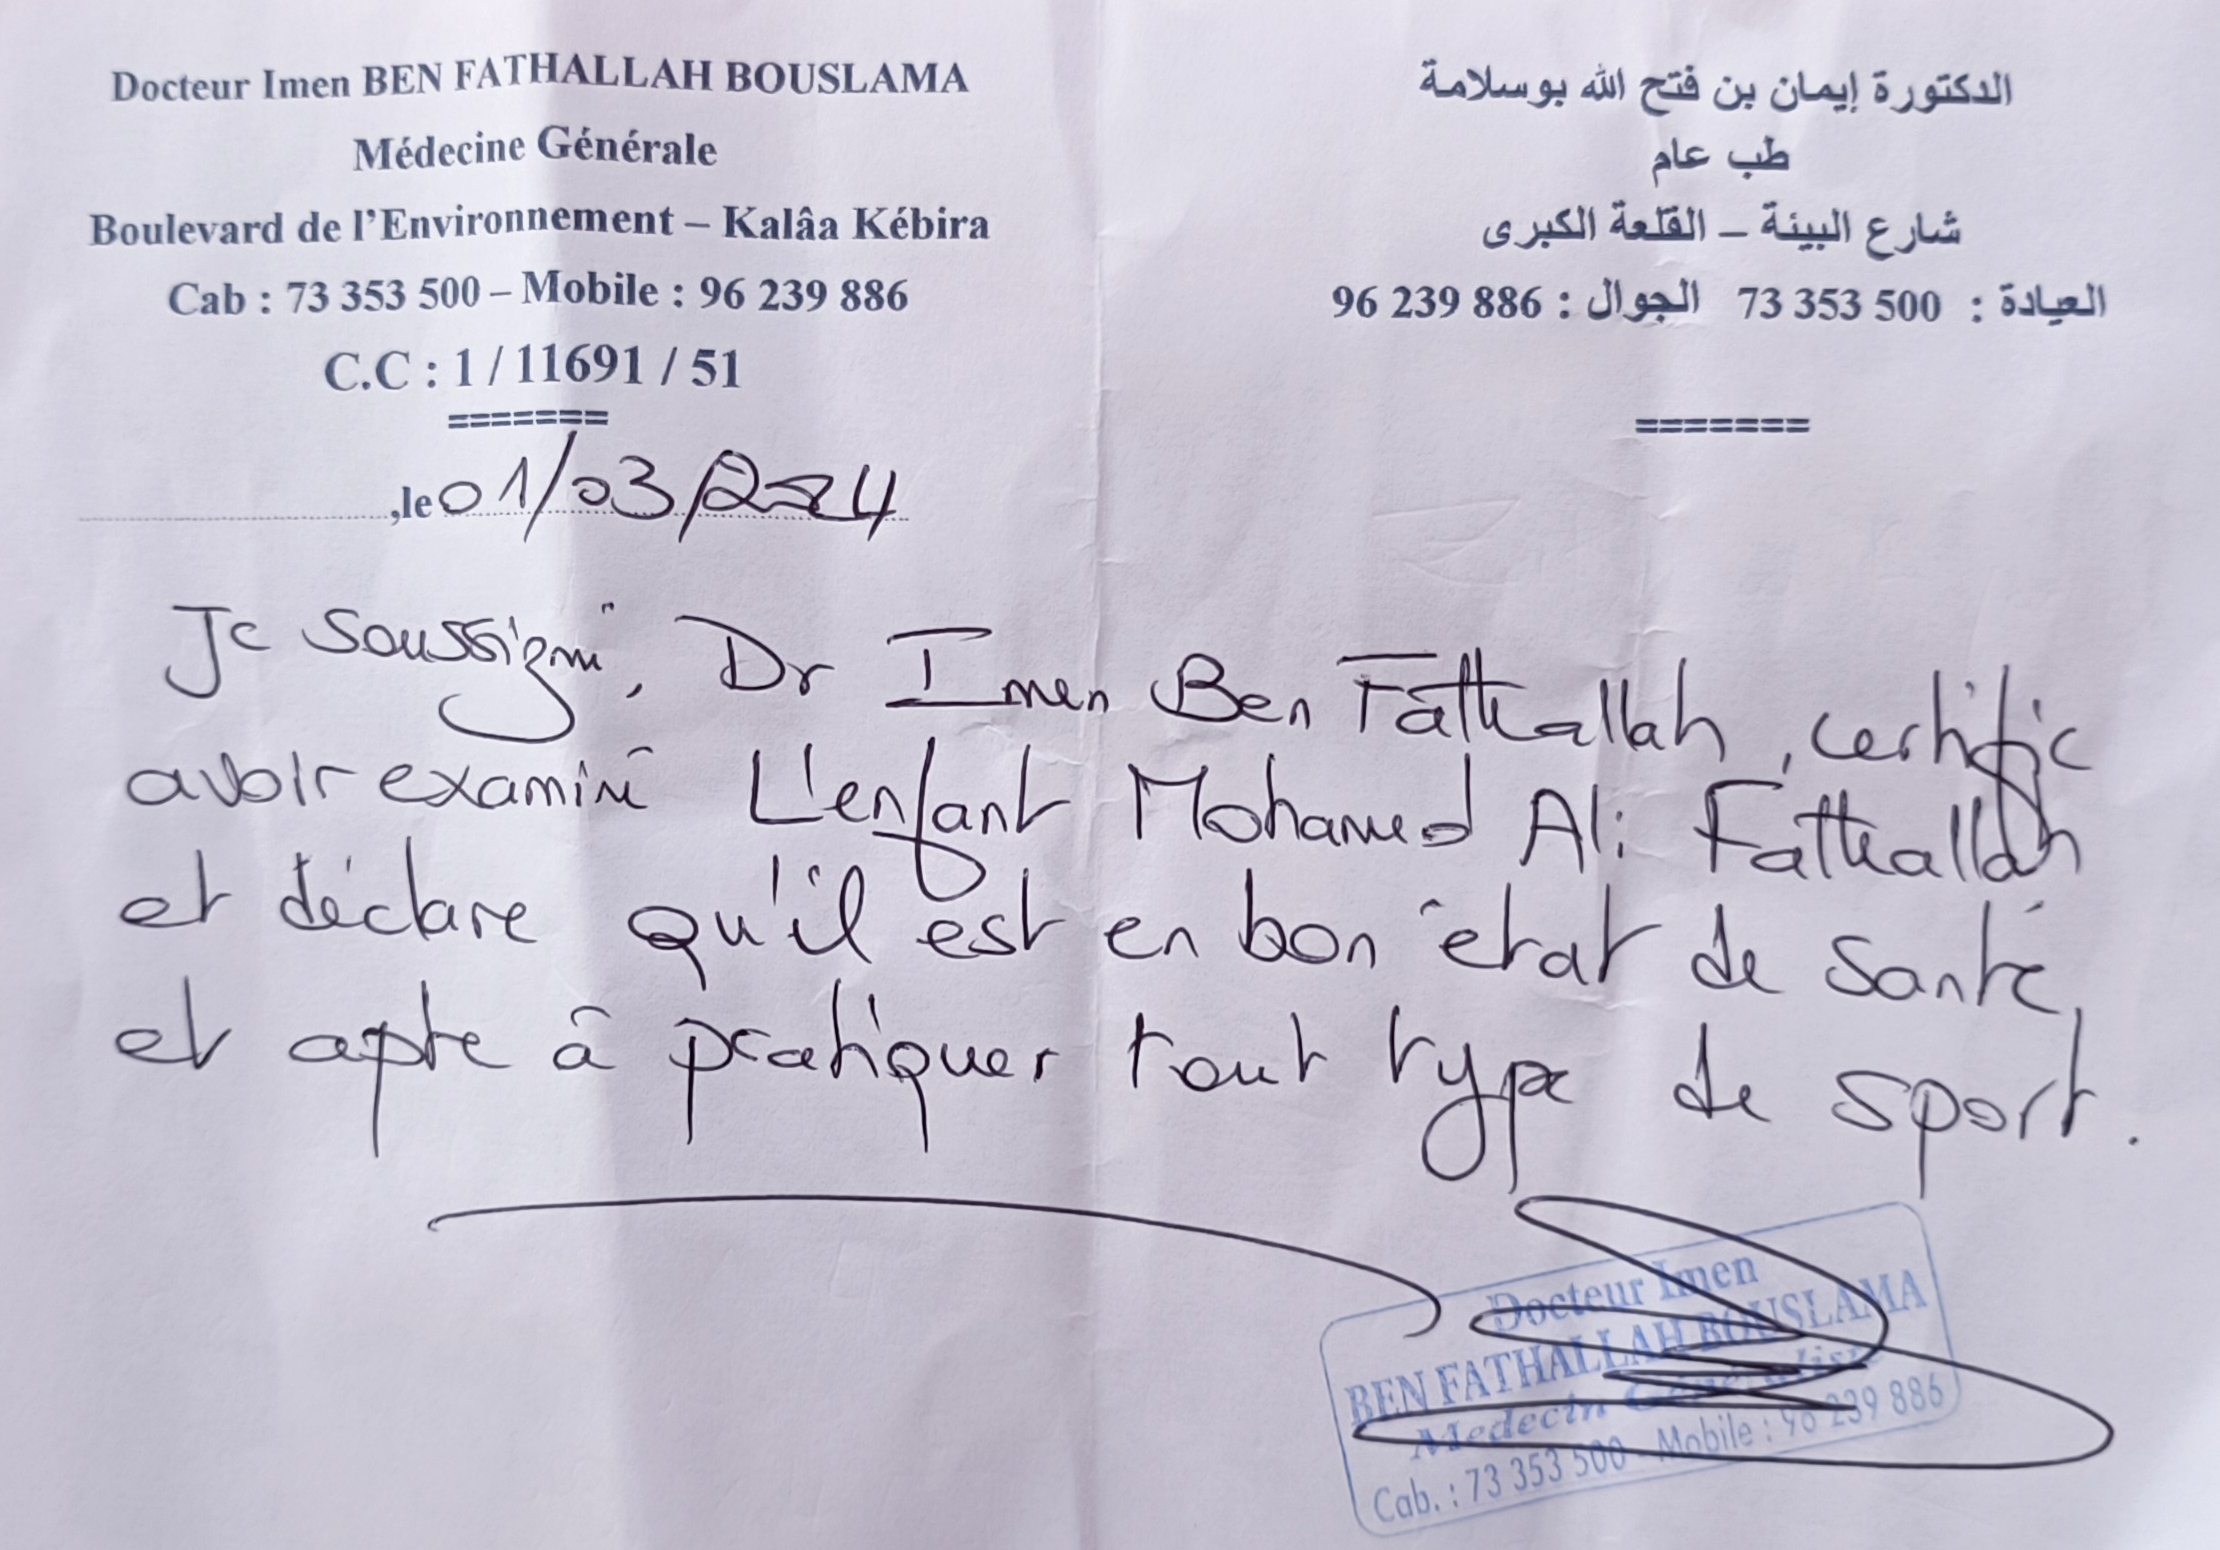 Docteur Imen BEN FATHALLAH BOUSLAMA
Médecine Générale
Boulevard de l'Environnement – Kalâa Kébira
Cab : 73 353 500 – Mobile : 96 239 886
C.C : 1 / 11691 / 51
=======
الدكتورة إيمان بن فتح الله بوسلامة
طب عام
شارع البيئة – القلعة الكبرى
العيادة : 73 353 500 الجوال : 96 239 886
=======
,le 01/03/2024
Je soussigné, Dr Imen Ben Fathallah, certifie
avoir examiné L'enfant Mohamed Ali Fathallah
et déclare qu'il est en bon état de santé
et apte à pratiquer tout type de sport.
Docteur Imen
BEN FATHALLAH BOUSLAMA
Medecin Généraliste
Cab. : 73 353 500 - Mobile : 96 239 886